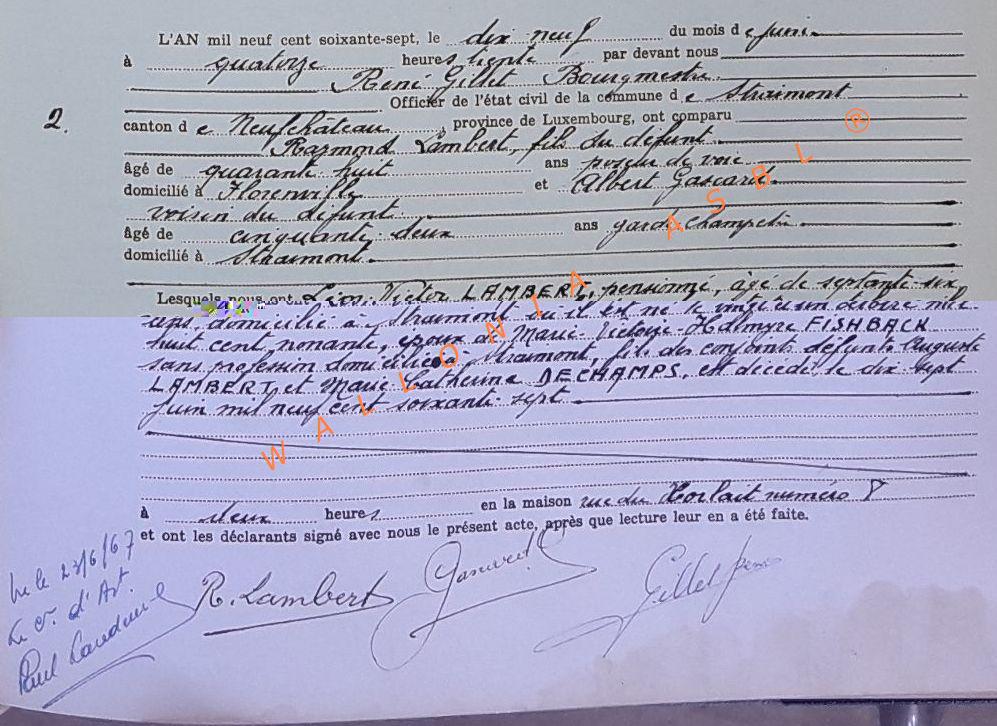 L'AN mil neuf cent soixante-sept, le dix neuf du mois d e juin
à quatorze heures trente par devant nous
René Gillet Bourgmestre
Officier de l'état civil de la commune d e Straimont
2. canton d e Neufchâteau, province de Luxembourg, ont comparu
Raymond Lambert, fils du défunt
âgé de quarante huit ans poseur de voie
domicilié à Florenville et Albert Gascard
voisin du défunt
âgé de cinquante deux ans garde champêtre
domicilié à Straimont
Lesquels nous ont Victor LAMBERT, pensionné, âgé de septante six
ans, domicilié à Straimont où il est né le mil
huit cent nonante, époux de Marie FISHBACK
sans profession domiciliée à Straimont, fils des conjoints défunts Auguste
LAMBERT, et Marie Catherine DECHAMPS, est décédé le dix sept
juin mil neuf cent soixante sept
à deux heures en la maison rue du numéro 8
et ont les déclarants signé avec nous le présent acte, après que lecture leur en a été faite.
Vu le 23/6/67
d'Art.
Paul
R. Lambert
Gillet
WALLONIA ASBL ®